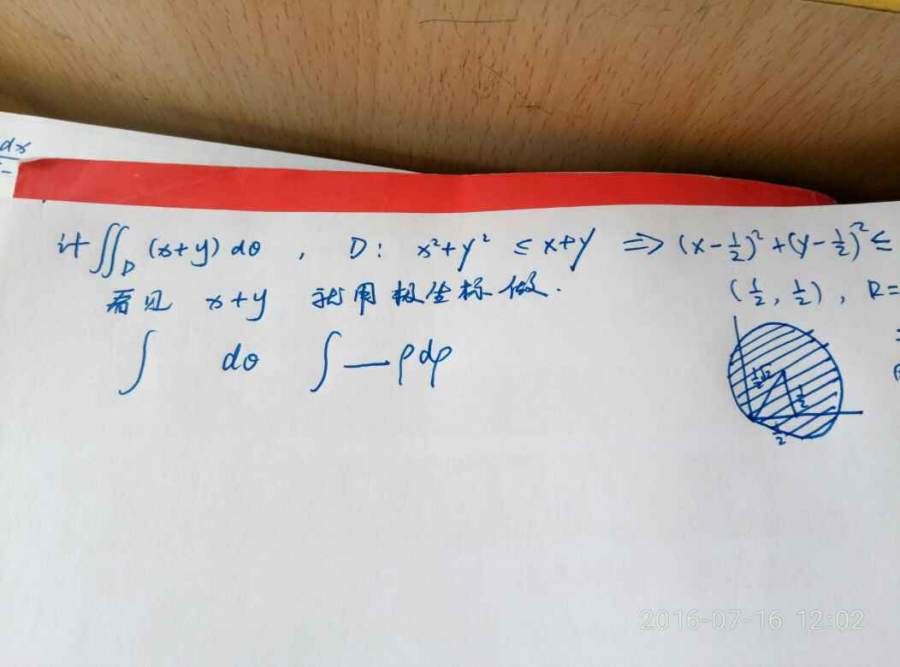 dx
计 ∬_D (x+y) dσ , D: x²+y² ≤ x+y ⇒ (x-1/2)²+(y-1/2)² ≤
看见 x+y 就用极坐标做.
(1/2, 1/2), R=
∫ dθ ∫ — ρdρ
1/2
1/2
2016-07-16 12:02